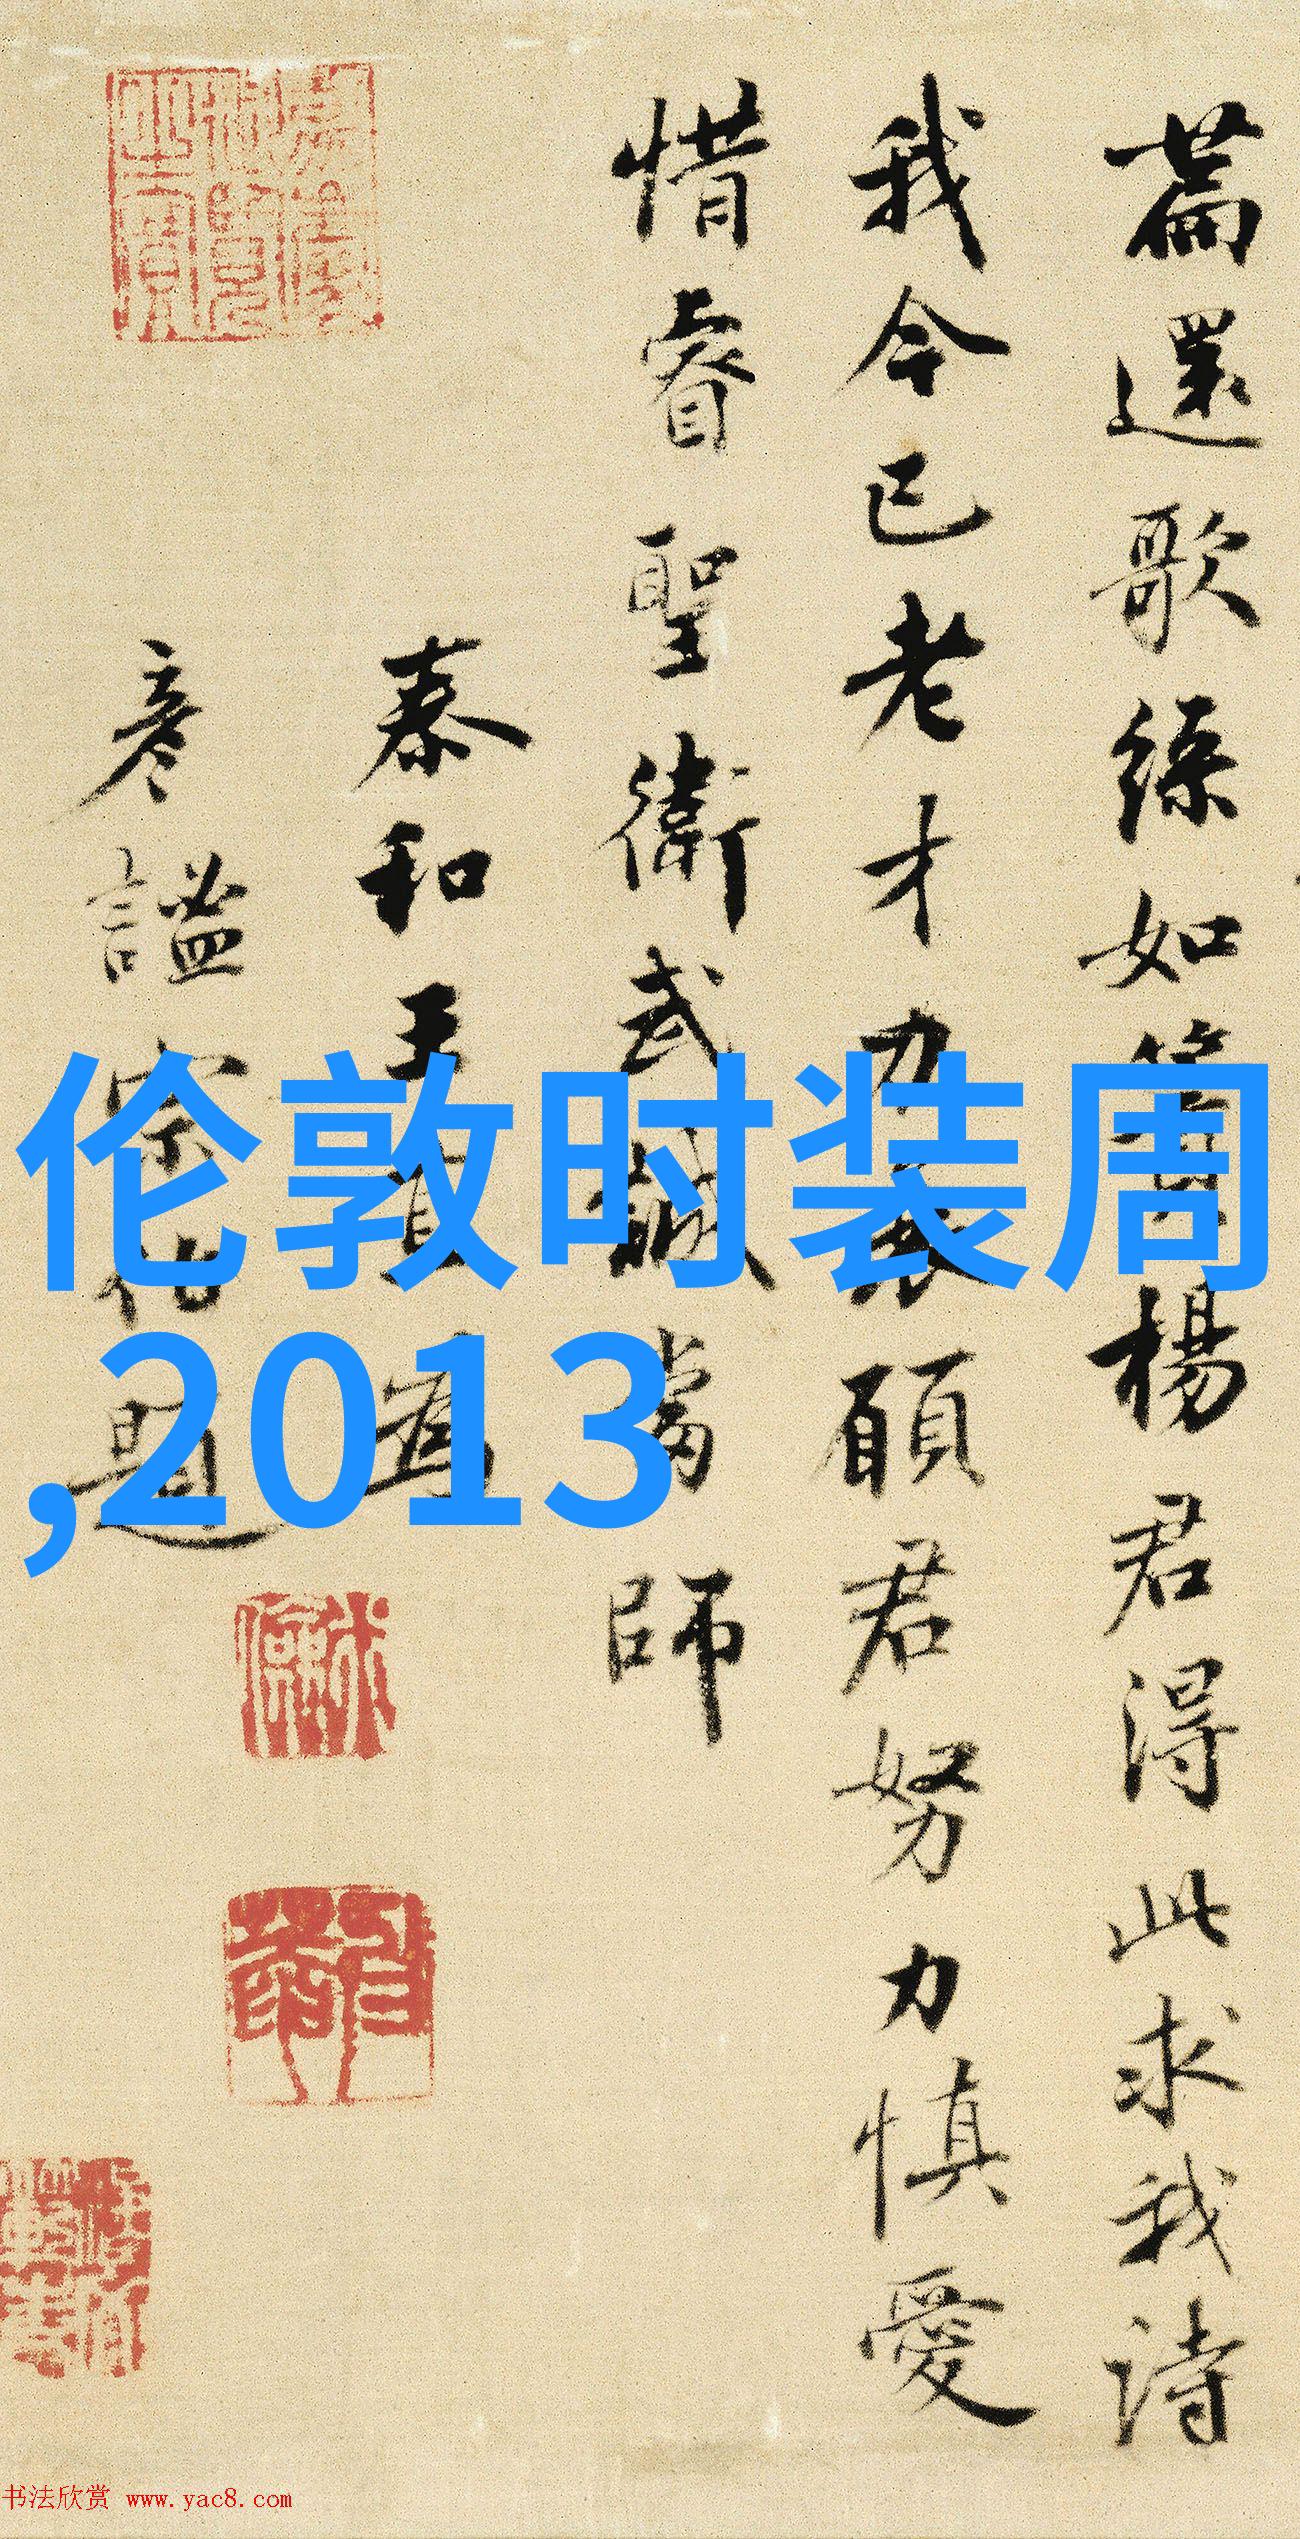 篇還歌綠如
楊君得此求我詩
我今已老才力衰願君努力慎愛
惜睿聖衛武誠當師
泰和王
為
彥謐宗伯題
伦敦时装周
,2013
书法欣赏 www.yac8.com